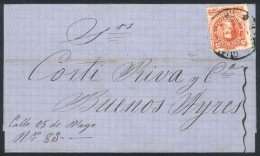 Sres
Corti Riva y Cia
Buenos Ayres
Calle 25 de Mayo
Nro 83